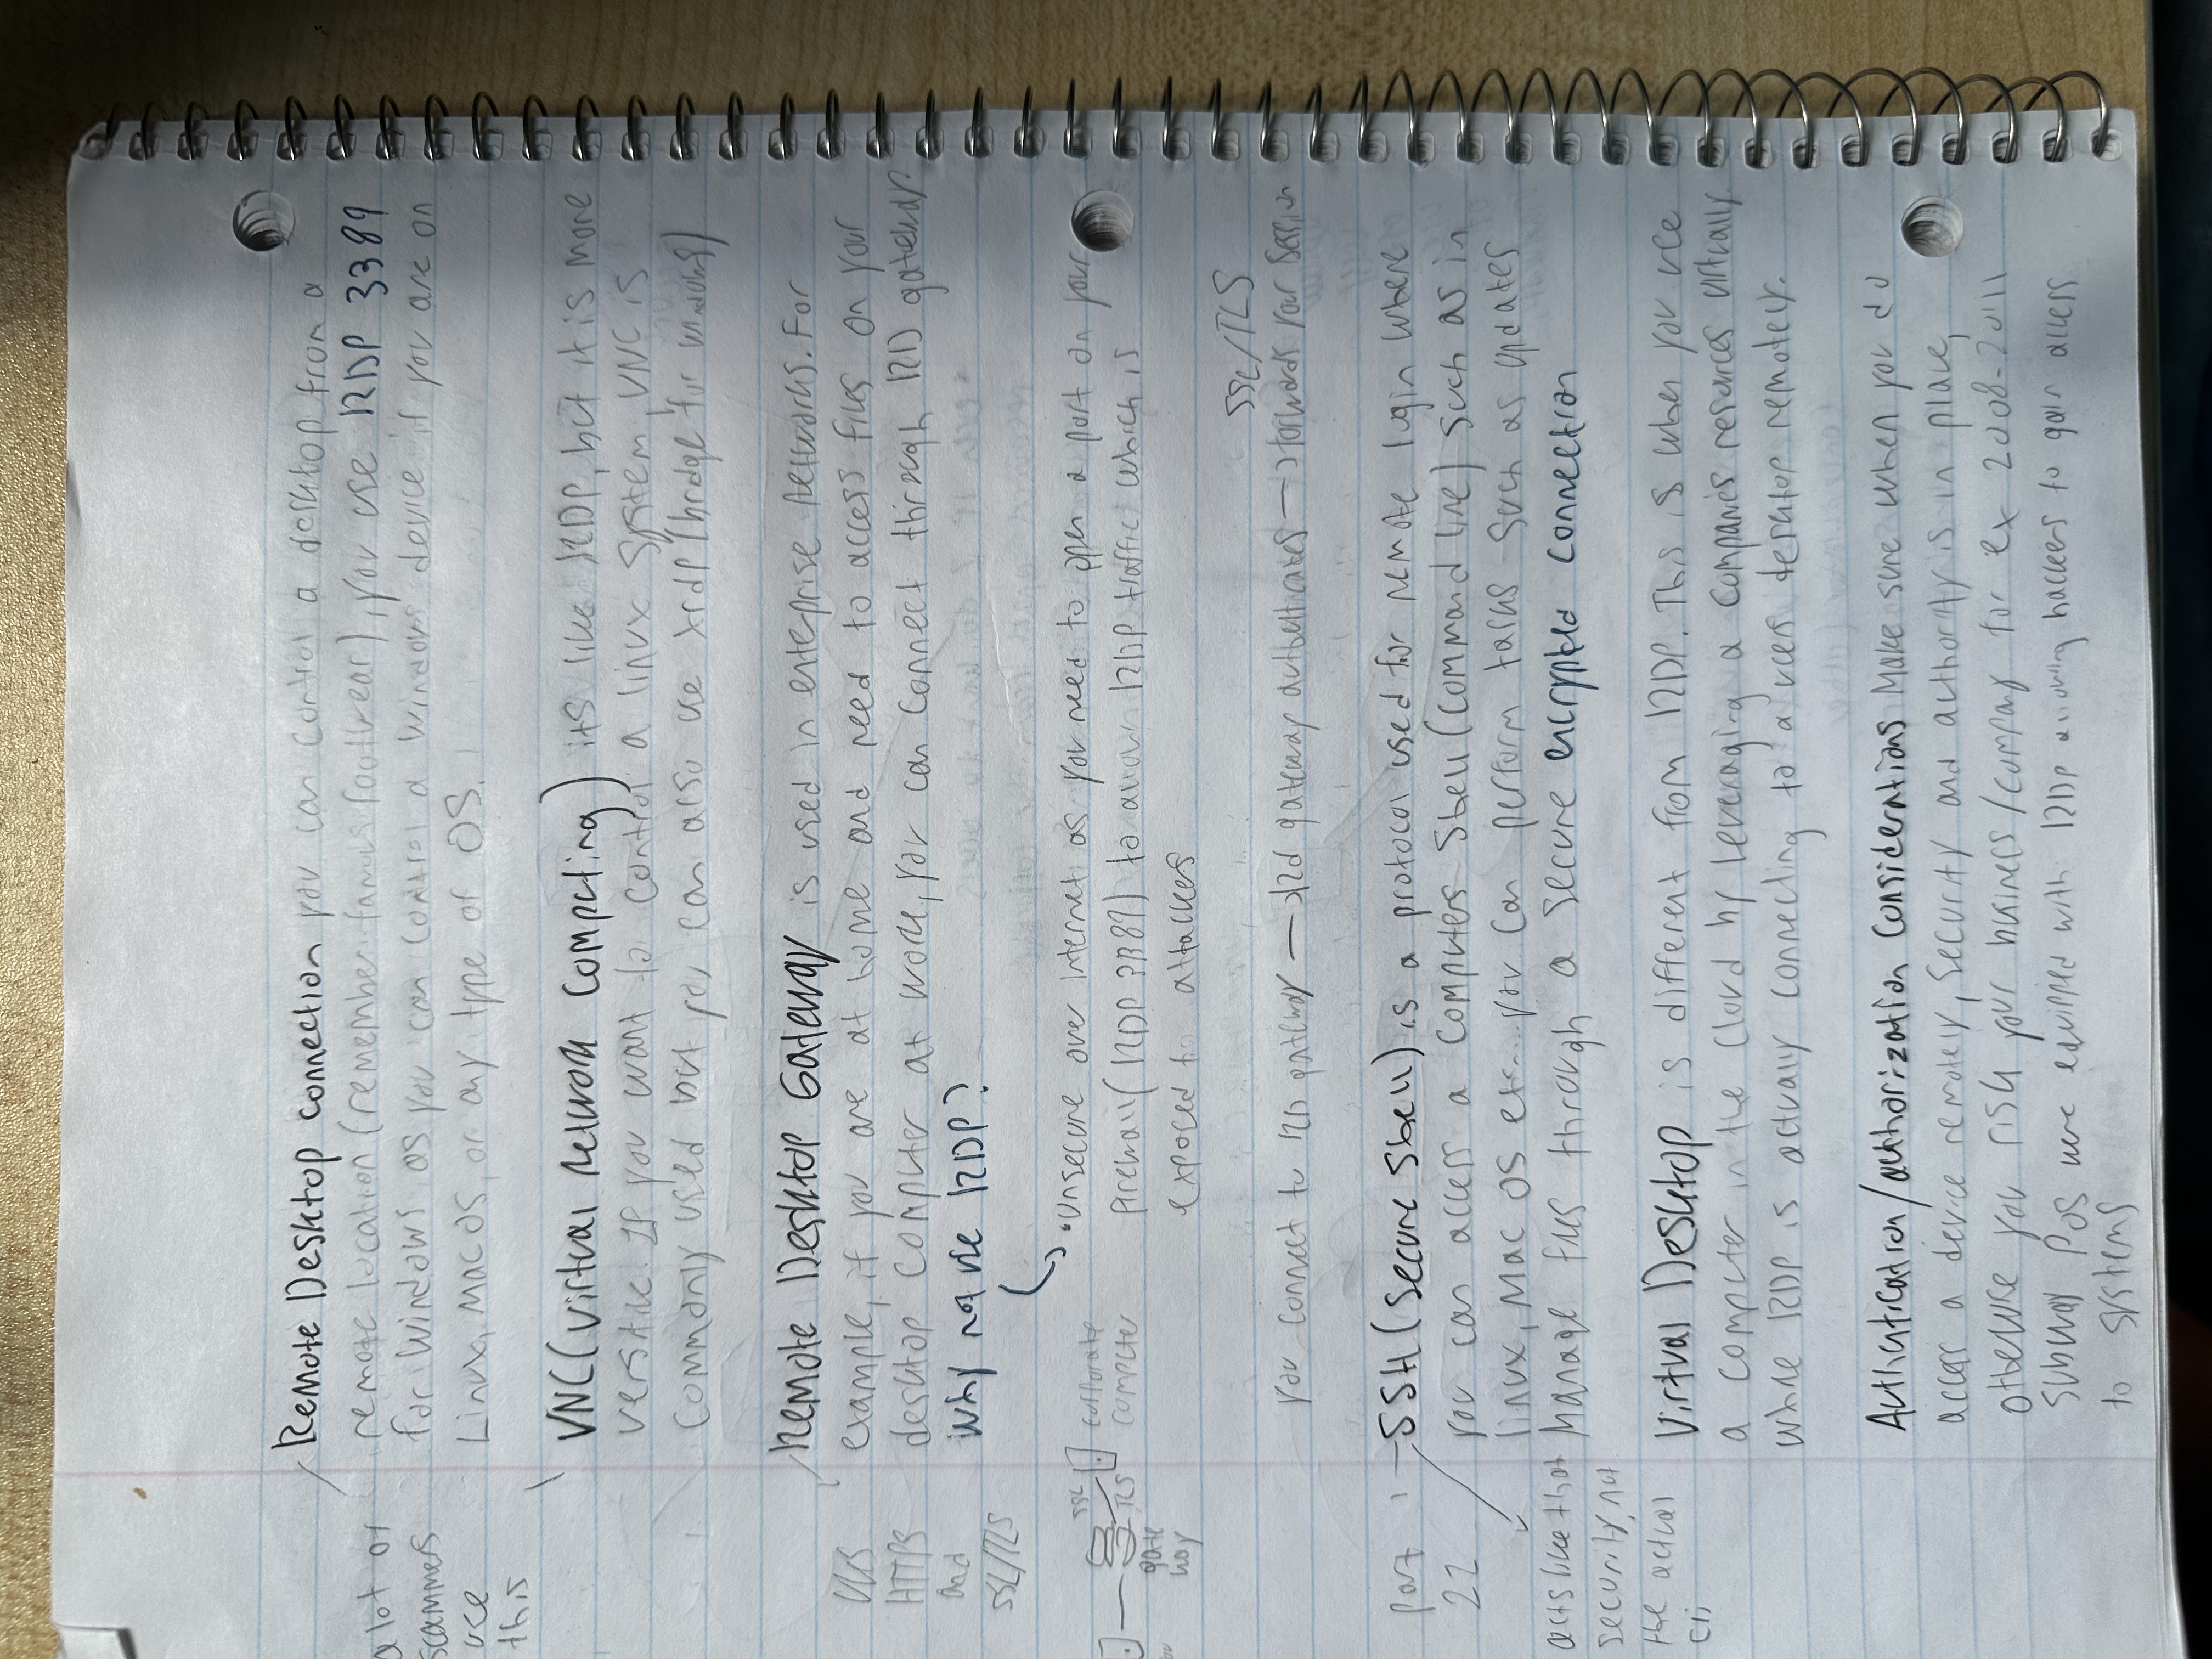 Remote Desktop connection you can control a desktop from a
remote location (remember famous footwear), you use RDP 3389
for Windows as you can control a windows device if you are on
Linux, Mac OS, or any type of OS.
a lot of
scammers
use
this
VNC (Virtual Network Computing) its like RDP, but it is more
versatile. If you want to control a linux system, VNC is
commonly used but you can also use xrdp (bridge for windows)
Remote Desktop Gateway is used in enterprise networks. For
example, if you are at home and need to access files on your
desktop computer at work, you can connect through RD gateway
Why not use RDP?
HTTPS
and
SSL/TLS
• Unsecure over internet as you need to open a port on your
firewall (RDP 3389) to allow RDP traffic which is
exposed to attackers
SSL
TLS
corporate
computer
gate
way
SSL/TLS
you connect to RD gateway → Rd gateway authenticates → forwards your session
port
22
SSH (Secure Shell) is a protocol used for remote login where
you can access a computers shell (command line) such as in
linux, Mac OS etc... you can perform tasks such as updates
manage files through a secure encrypted connection
acts like that
security, not
the actual
cli
Virtual Desktop is different from RDP. This is when you use
a computer in the cloud by leveraging a companies resources virtually
while RDP is actually connecting to a users desktop remotely.
Authentication/authorization considerations Make sure when you do
access a device remotely, security and authority is in place,
otherwise you risk your business/company for ex 2008-2011
Subway POS were equipped with RDP allowing hackers to gain access
to systems